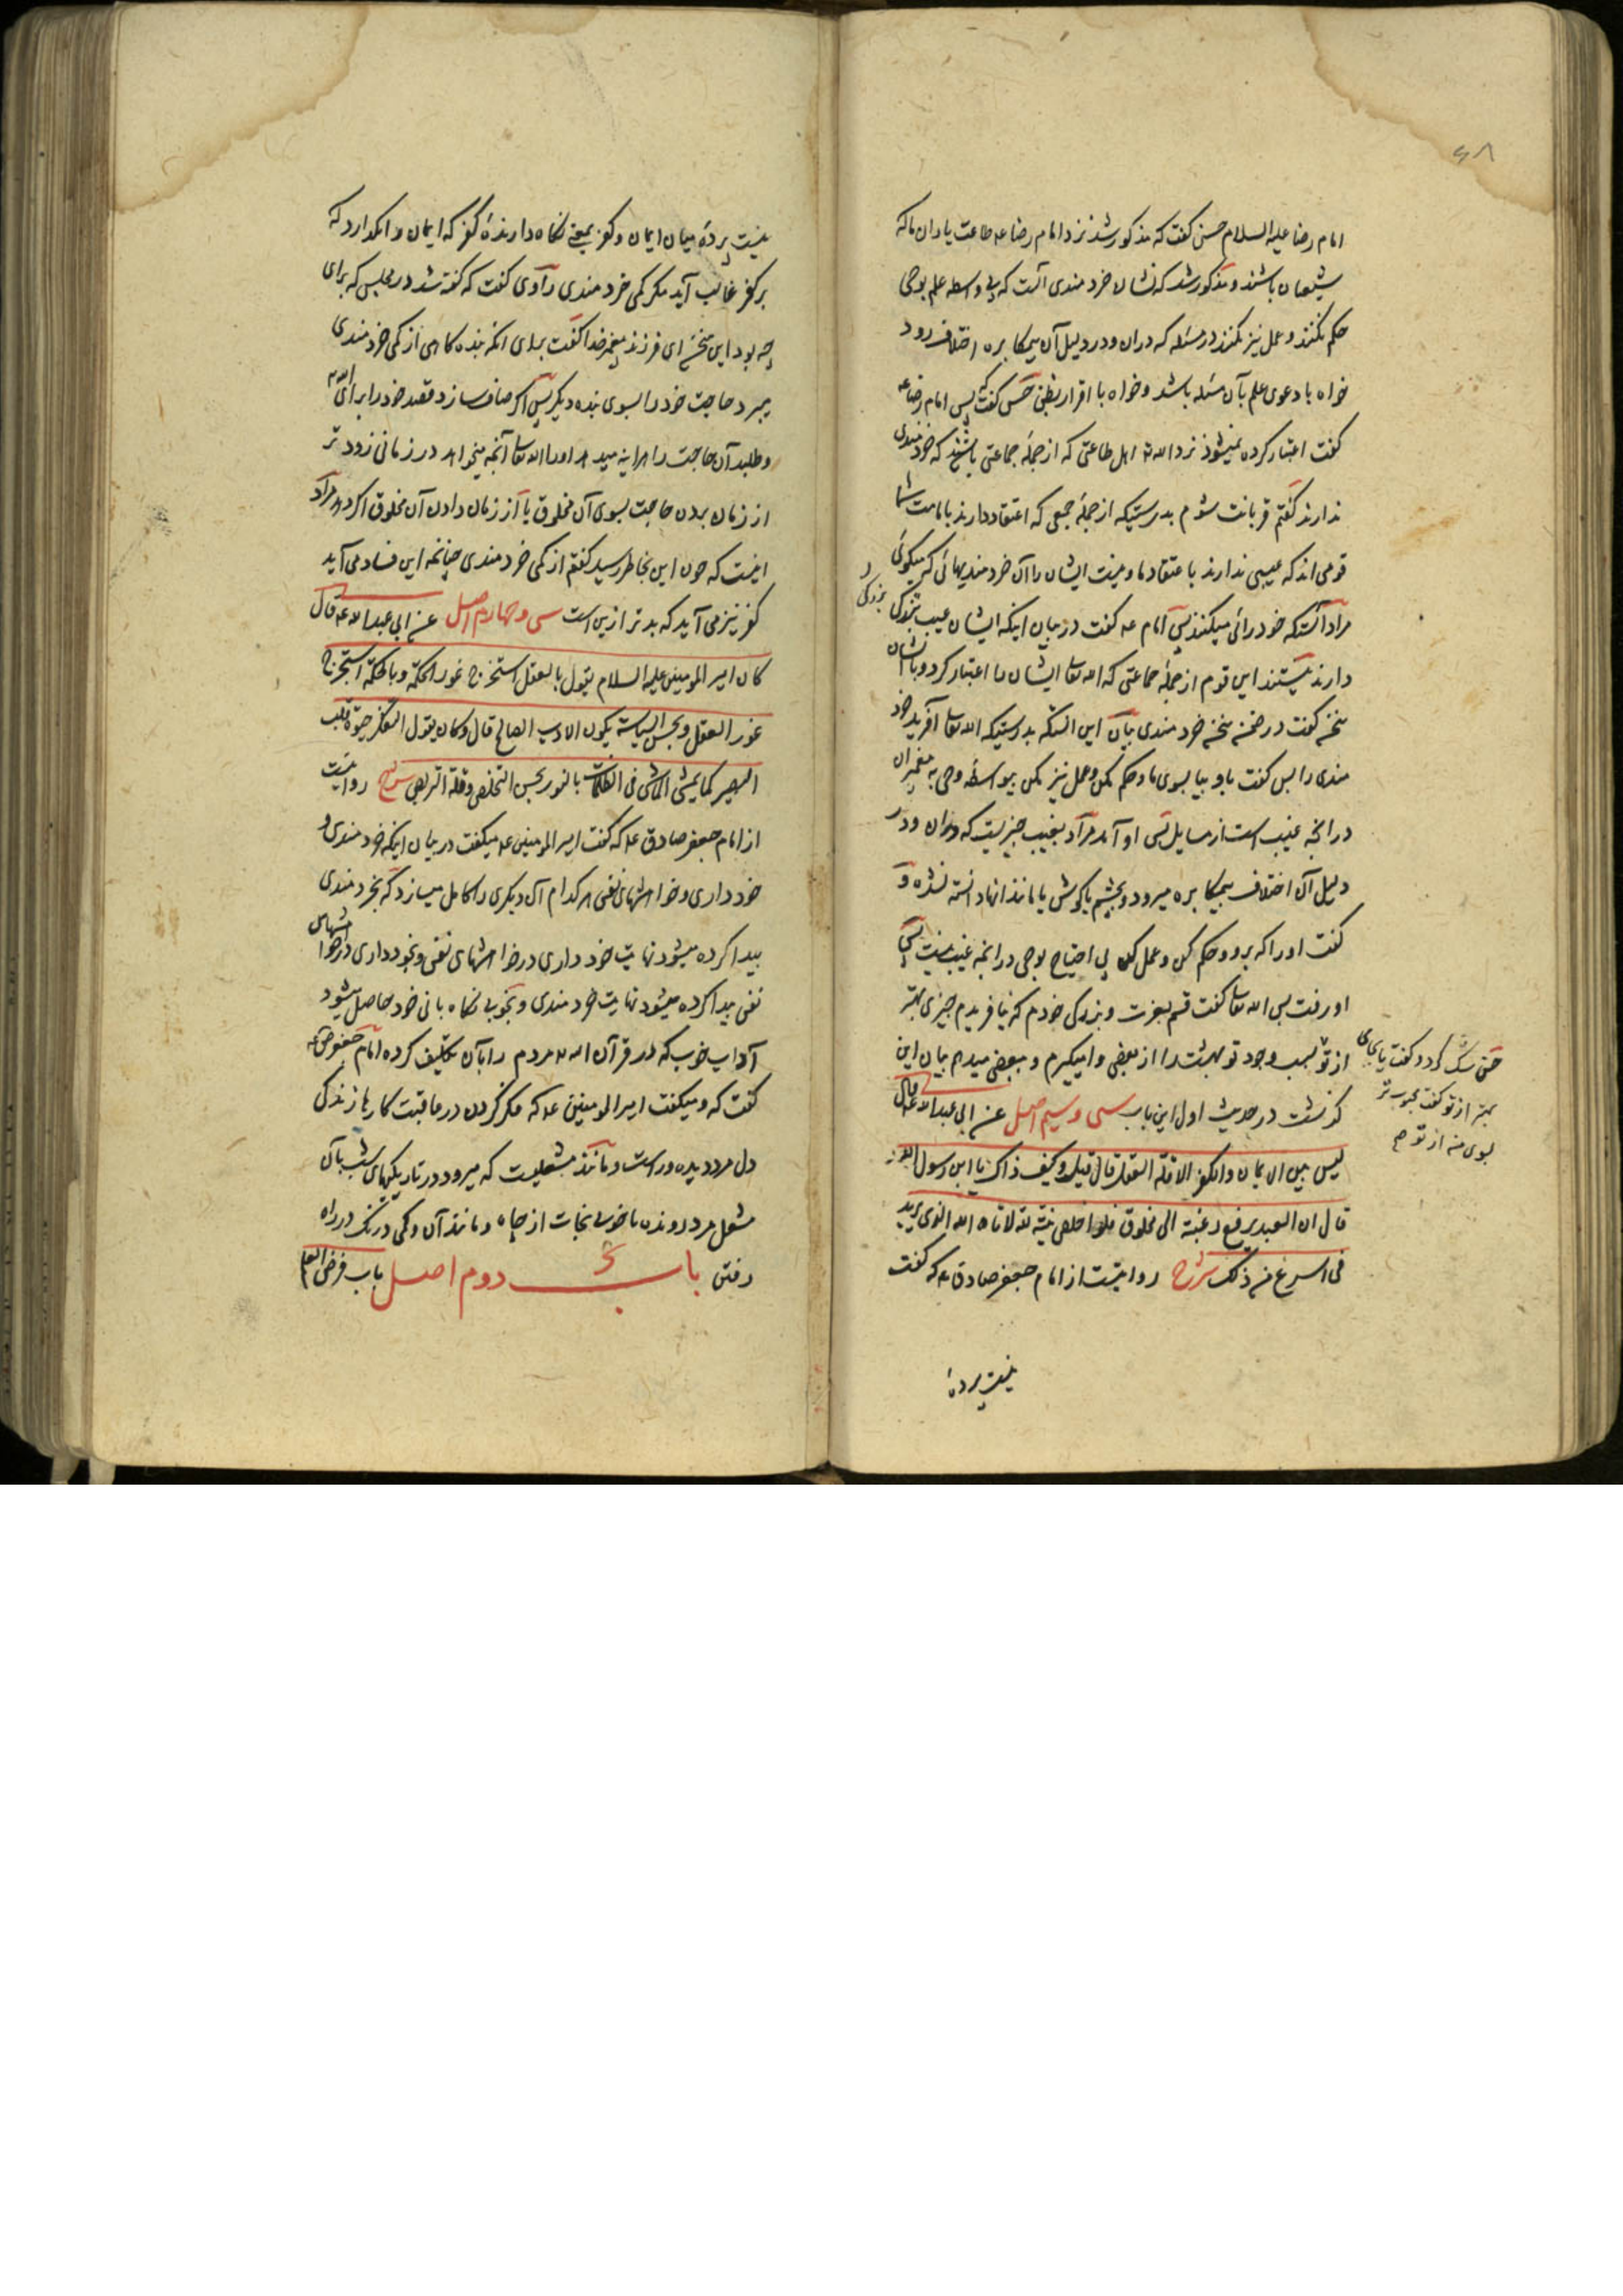 ۶۸
امام رضا علیه السلام حسن گفت که مذکور شد نزد امام رضا عه طاعت یاران ما که
شیعیان باشند و مذکور شد که نشان خردمندی آنست که بی واسطه علم بوحی
حکم نکنند و عمل نیز نکنند در مسئله که در ان و در دلیل آن بیمکابره اختلاف رود
خواه با دعوی علم بآن مسئله باشد و خواه با اقرار بظن حسن گفت که پس امام رضا عه
گفت اعتبار کرده نمیشود نزد الله تع اهل طاعتی که از جملهٔ جماعتی باشند که خردمندی
ندارند گفتم قربانت شوم بدرستیکه از جملهٔ جمعی که اعتقاد دارند بامامت شما
قومی اند که عیبی ندارند باعتقاد ما و نیست ایشان را آن خردمندیهائی که میگوئی
مراد آنستکه خودرائی میکنند پس امام عه گفت در بیان اینکه ایشان عیب بزرگی
دارند نیستند این قوم از جملهٔ جماعتی که الله تعا ایشان را اعتبار کرد و باایشان
سخن گفت در ضمن سخن خردمندی بیان این انستکه بدرستیکه الله تعا آفرید خرد
مندی را پس گفت باو بیا بسوی ما و حکم مکن و عمل نیز مکن بیواسطه وحی به پیغمبران
در انچه غیب است از مسایل پس او آمد مراد بغیب چیزیست که در ان و در
دلیل آن اختلاف بیمکابره میرود و بچشم یا گوش یا مانند انها دانسته نشده و
گفت او را که برو و حکم کن و عمل کن بی احتیاج بوحی در انچه غیب نیست پس
او رفت پس الله تعا گفت قسم بعزت و بزرگی خودم که نیافریدم چیزی بهتر
از تو بسبب وجود تو بهشت را از بعضی وامیگیرم و ببعضی میدهم بیان این
گذشت در حدیث اول این باب سی و سیم اصل عن ابی عبد الله عه قال
لیس بین الایمان والکفر الا قلة العقل قال قیل وکیف ذاک یا ابن رسول الله
قال ان العبد یرفع رغبته الی مخلوق فلو اخلص نیته لله لاتاه الله الذی یرید
فی اسرع من ذلک شرح روایتست از امام جعفر صادق عه که گفت
نیست پردهٔ
بزرگی
حتی گفت یا بجای
بهتر از تو گفت محبوب تر
بسوی من از تو صح
نیست پردهٔ میان ایمان و کفر بمعنی نگاه دارندهٔ کفر که ایمان را نگذارد که
بر کفر غالب آید مگر کمی خردمندی راوی گفت که گفته شد در مجلس که برای
چه بود این سخن ای فرزند پیغمبر خدا گفت برای انکه بنده گاهی از کمی خردمندی
میبرد حاجت خود را بسوی بنده دیگر پس اگر صاف سازد قصد خود را برای الله تع
و طلبد آن حاجت را هراینه میدهد او را الله تعا آنچه میخواهد در زمانی زودتر
از زمان بردن حاجت بسوی آن مخلوق یا از زمان دادن آن مخلوق اگر دهد مراد
اینست که چون این بخاطر رسید گفتم از کمی خردمندی چنانچه این فساد می آید
کفر نیز می آید که بدتر ازین است سی و چهارم اصل عن ابی عبد الله عه قال
کان امیر المومنین علیه السلام یقول بالعقل استخرج غور الحکمة وبالحکمة استخرج
غور العقل وبحسن السیاسة یکون الادب الصالح قال وکان یقول التفکر حیوة قلب
البصیر کما یمشی الماشی فی الظلمات بالنور بحسن التخلص وقلة التربص شرح روایتست
از امام جعفر صادق عه که گفت امیر المومنین عه میگفت در بیان اینکه خردمندی و
خودداری و خواهشهای نفس هرکدام آن دیگری را کامل میسازد که بخردمندی
پیدا کرده میشود نهایت خودداری در خواهشهای نفس و بخودداری در خواهشهای
نفس پیدا کرده میشود نهایت خردمندی و بخوبی نگاه بانی خود حاصل میشود
آداب خوب که در قرآن الله تع مردم را بآن تکلیف کرده امام جعفر صادق عه
گفت که و میگفت امیر المومنین عه که فکر کردن در عاقبت کارها زندگی
دل مرد دیده ور است و مانند مشعلیست که میرود در تاریکیهای شب بآن
مشعل مرد رونده با خوبی نجات از چاه و مانند آن و کمی درنگ در راه
رفتن باب دوم اصل باب فرض العلم